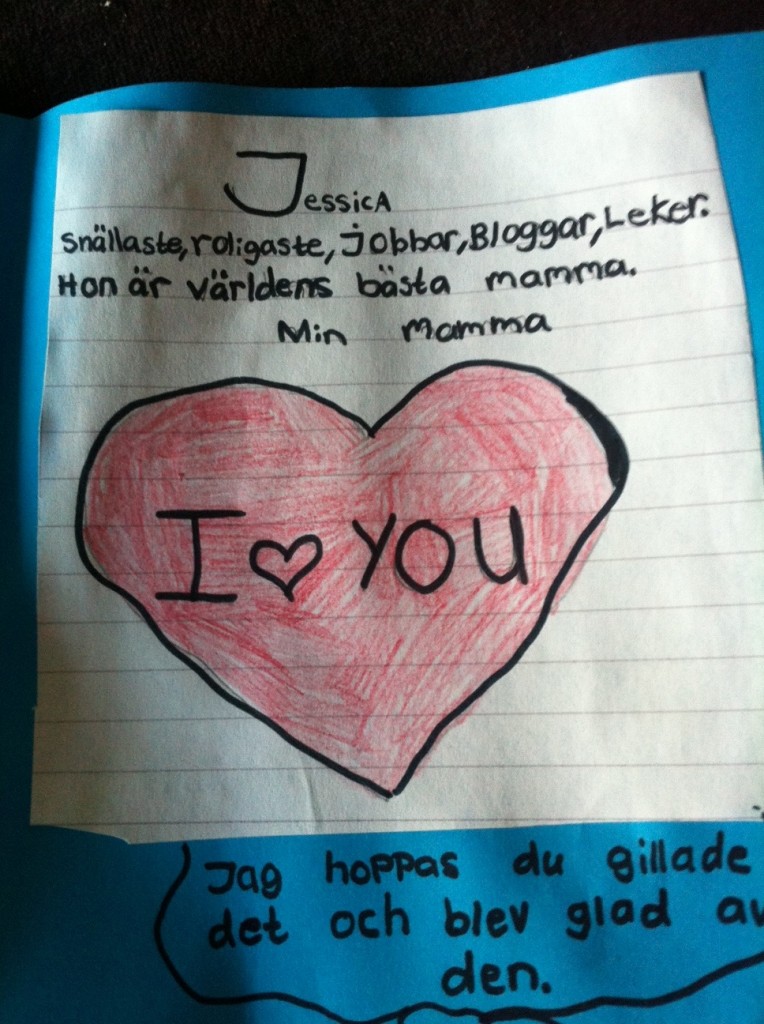 JessicA
Snällaste, roligaste, jobbar, Bloggar, Leker.
Hon är världens bästa mamma.
Min Mamma
I ♥ YOU
Jag hoppas du gillade
det och blev glad av
den.